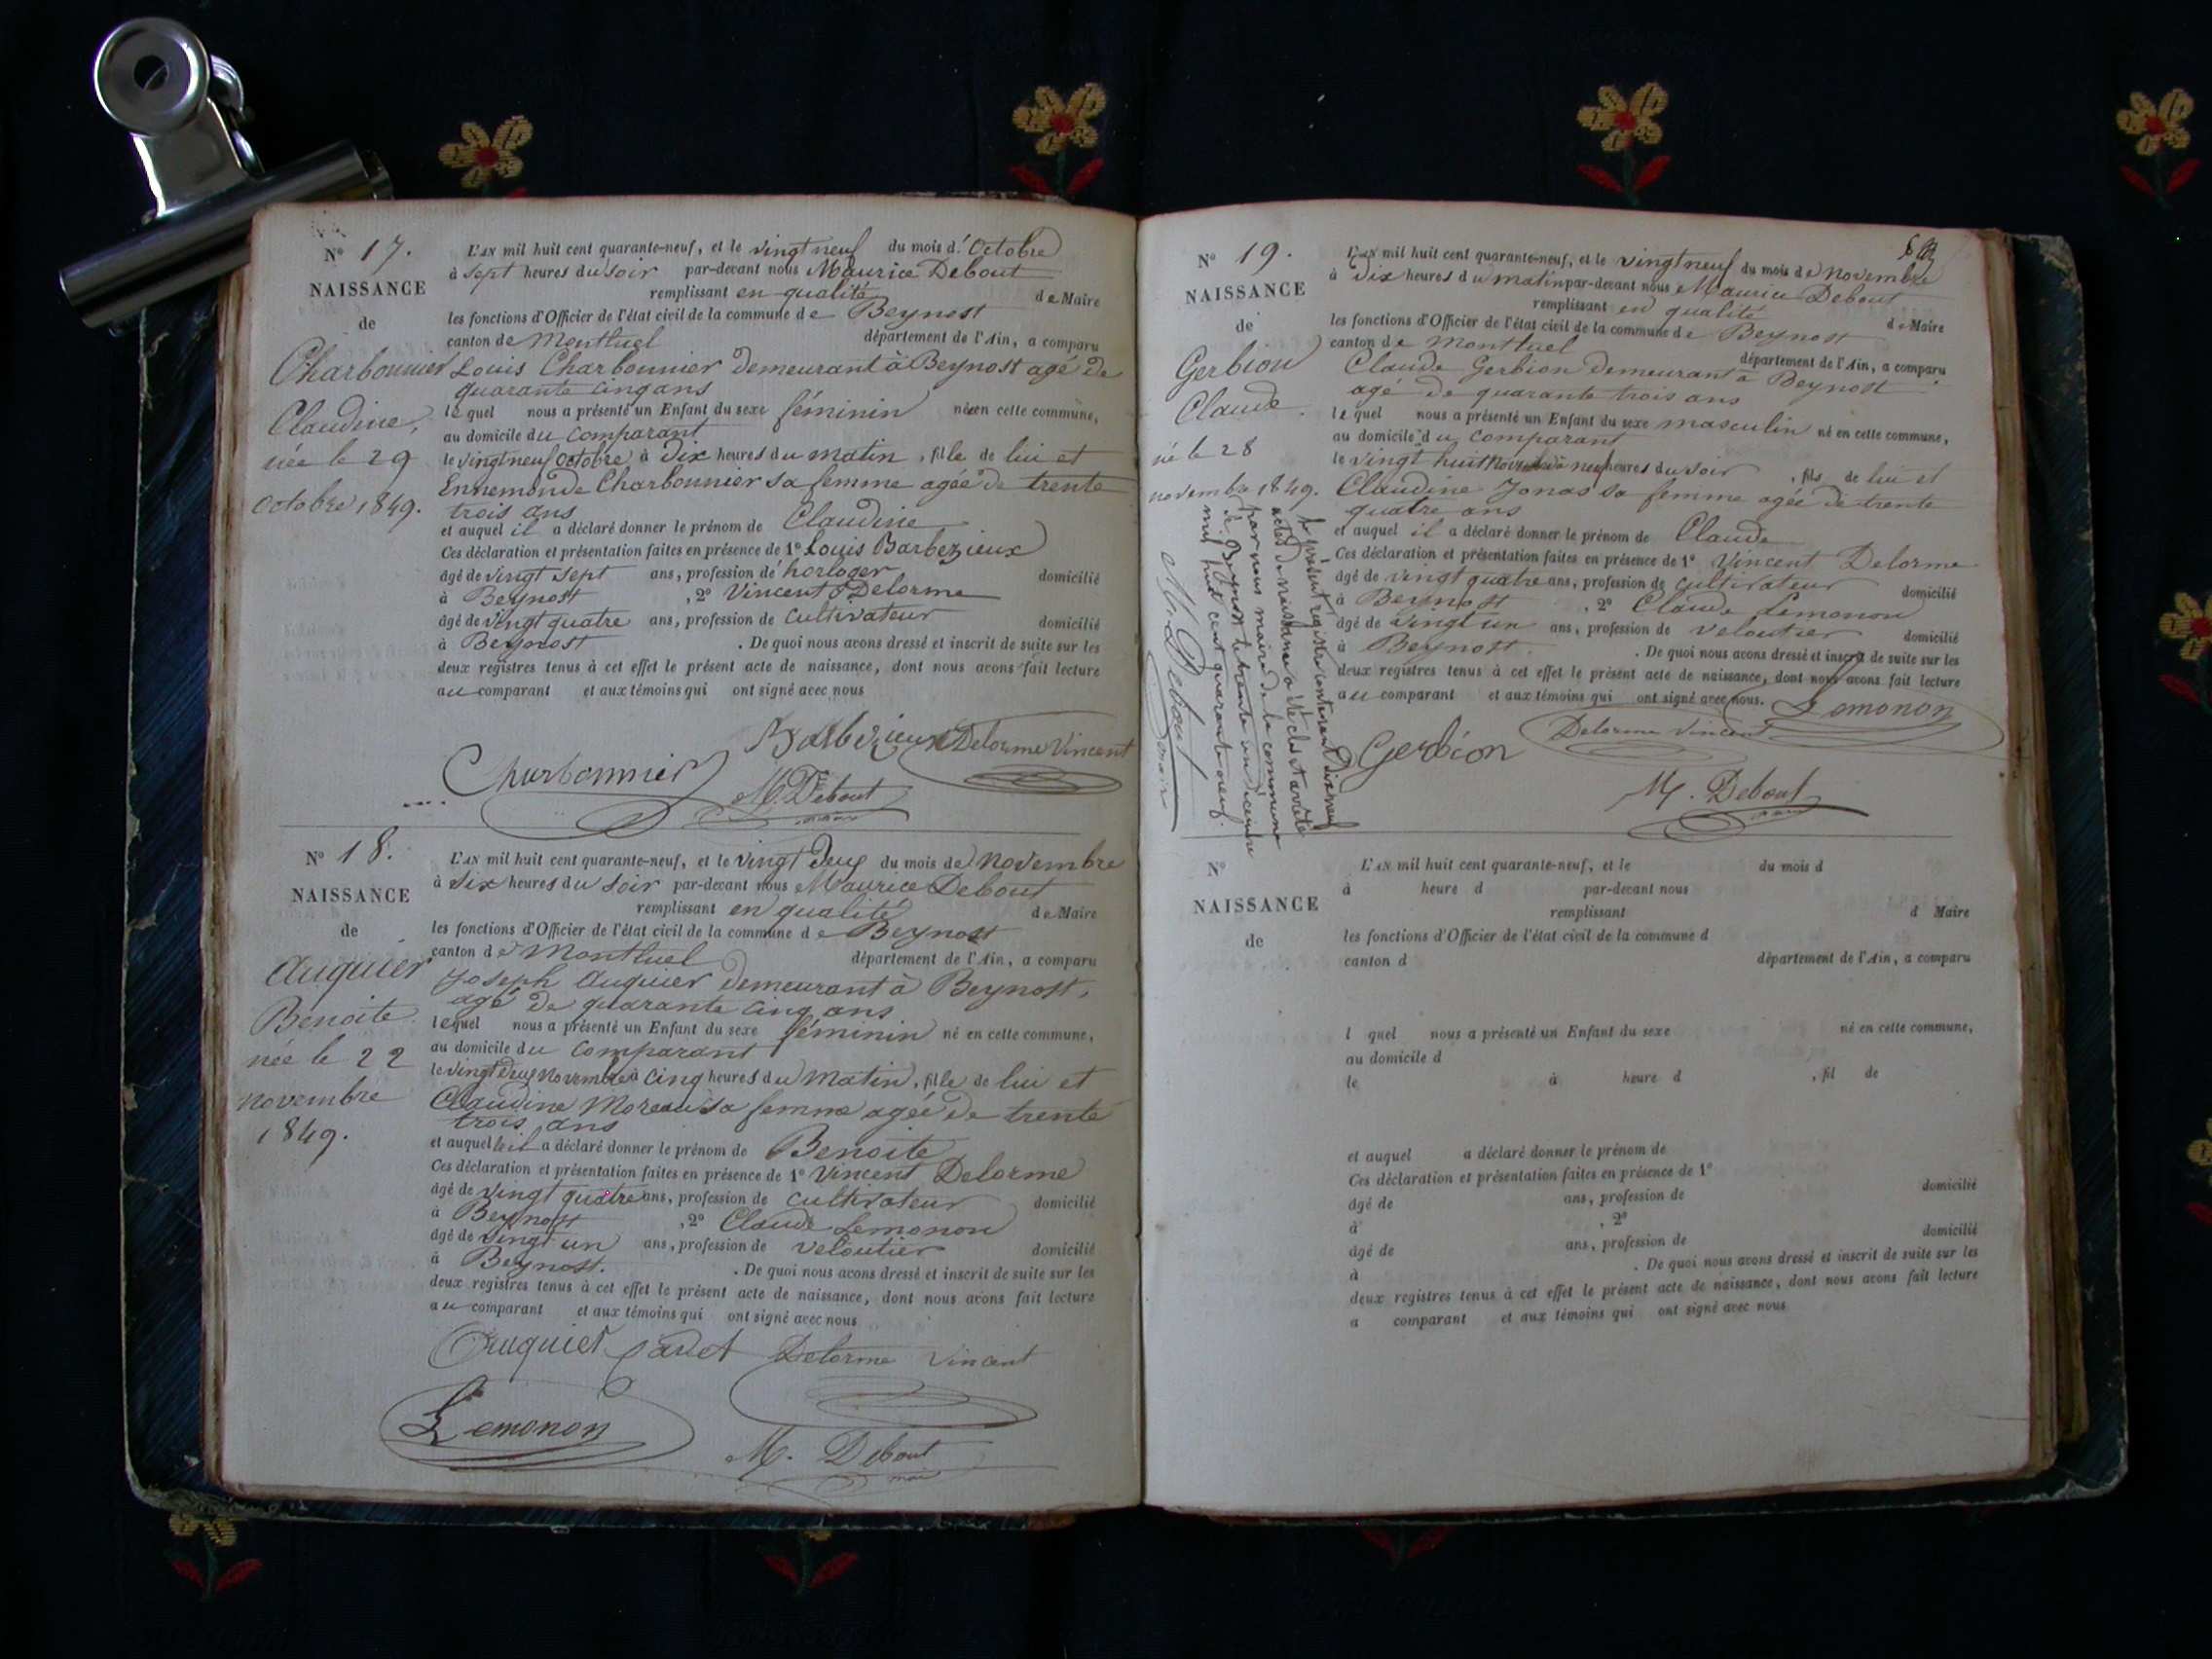 N° 17.
NAISSANCE
de
Charbonnier
Claudine,
née le 29
Octobre 1849.
L'AN mil huit cent quarante-neuf, et le vingt neuf du mois d'Octobre
à sept heures du soir par-devant nous Maurice Debout
remplissant en qualité de Maire
les fonctions d'Officier de l'état civil de la commune de Beynost
canton de Montluel département de l'Ain, a comparu
Louis Charbonnier demeurant à Beynost agé de
quarante cinq ans
lequel nous a présenté un Enfant du sexe féminin né en cette commune,
au domicile du comparant
le vingt neuf Octobre à dix heures du matin, fille de lui et
Ennemonde Charbonnier sa femme agée de trente
trois ans
et auquel il a déclaré donner le prénom de Claudine
Ces déclaration et présentation faites en présence de 1° Louis Barbezieux
âgé de vingt sept ans, profession de horloger domicilié
à Beynost , 2° Vincent Delorme
âgé de vingt quatre ans, profession de cultivateur domicilié
à Beynost . De quoi nous avons dressé et inscrit de suite sur les
deux registres tenus à cet effet le présent acte de naissance, dont nous avons fait lecture
au comparant et aux témoins qui ont signé avec nous
Barbezieux Delorme Vincent
Charbonnier
M. Debout
maire
N° 18.
NAISSANCE
de
Auquier
Benoite
née le 22
novembre
1849.
L'AN mil huit cent quarante-neuf, et le vingt deux du mois de novembre
à six heures du soir par-devant nous Maurice Debout
remplissant en qualité de Maire
les fonctions d'Officier de l'état civil de la commune de Beynost
canton de Montluel département de l'Ain, a comparu
Joseph Auquier demeurant à Beynost,
agé de quarante cinq ans
lequel nous a présenté un Enfant du sexe féminin né en cette commune,
au domicile du comparant
le vingt deux novembre à cinq heures du matin, fille de lui et
Claudine Moreau sa femme agée de trente
trois ans
et auquel il a déclaré donner le prénom de Benoite
Ces déclaration et présentation faites en présence de 1° Vincent Delorme
âgé de vingt quatre ans, profession de cultivateur domicilié
à Beynost , 2° Claude Lemonon
âgé de vingt un ans, profession de veloutier domicilié
à Beynost. . De quoi nous avons dressé et inscrit de suite sur les
deux registres tenus à cet effet le présent acte de naissance, dont nous avons fait lecture
au comparant et aux témoins qui ont signé avec nous
Auquier cadet Delorme Vincent
Lemonon
M. Debout
maire
N° 19.
NAISSANCE
de
Gerbion
Claude.
né le 28
novembre 1849.
le présent registre contenant dix neuf
actes de naissance a été clos et arrêté
par nous maire de la commune
de Beynost le trente un décembre
mil huit cent quarante neuf.
M. Debout
maire
L'AN mil huit cent quarante-neuf, et le vingt neuf du mois de novembre
à dix heures du matin par-devant nous Maurice Debout
remplissant en qualité de Maire
les fonctions d'Officier de l'état civil de la commune de Beynost
canton de Montluel département de l'Ain, a comparu
Claude Gerbion demeurant à Beynost
agé de quarante trois ans
lequel nous a présenté un Enfant du sexe masculin né en cette commune,
au domicile du comparant
le vingt huit novembre à neuf heures du soir , fils de lui et
Claudine Jonas sa femme agée de trente
quatre ans
et auquel il a déclaré donner le prénom de Claude
Ces déclaration et présentation faites en présence de 1° Vincent Delorme
âgé de vingt quatre ans, profession de cultivateur domicilié
à Beynost , 2° Claude Lemonon
âgé de vingt un ans, profession de veloutier domicilié
à Beynost. . De quoi nous avons dressé et inscrit de suite sur les
deux registres tenus à cet effet le présent acte de naissance, dont nous avons fait lecture
au comparant et aux témoins qui ont signé avec nous. Lemonon
Delorme Vincent
Gerbion
M. Debout
maire
N°
NAISSANCE
de
L'AN mil huit cent quarante-neuf, et le du mois d
à heure d par-devant nous
remplissant d Maire
les fonctions d'Officier de l'état civil de la commune d
canton d département de l'Ain, a comparu
l quel nous a présenté un Enfant du sexe né en cette commune,
au domicile d
le à heure d , fil de
et auquel a déclaré donner le prénom de
Ces déclaration et présentation faites en présence de 1°
âgé de ans, profession de domicilié
à , 2°
âgé de ans, profession de domicilié
à . De quoi nous avons dressé et inscrit de suite sur les
deux registres tenus à cet effet le présent acte de naissance, dont nous avons fait lecture
a comparant et aux témoins qui ont signé avec nous